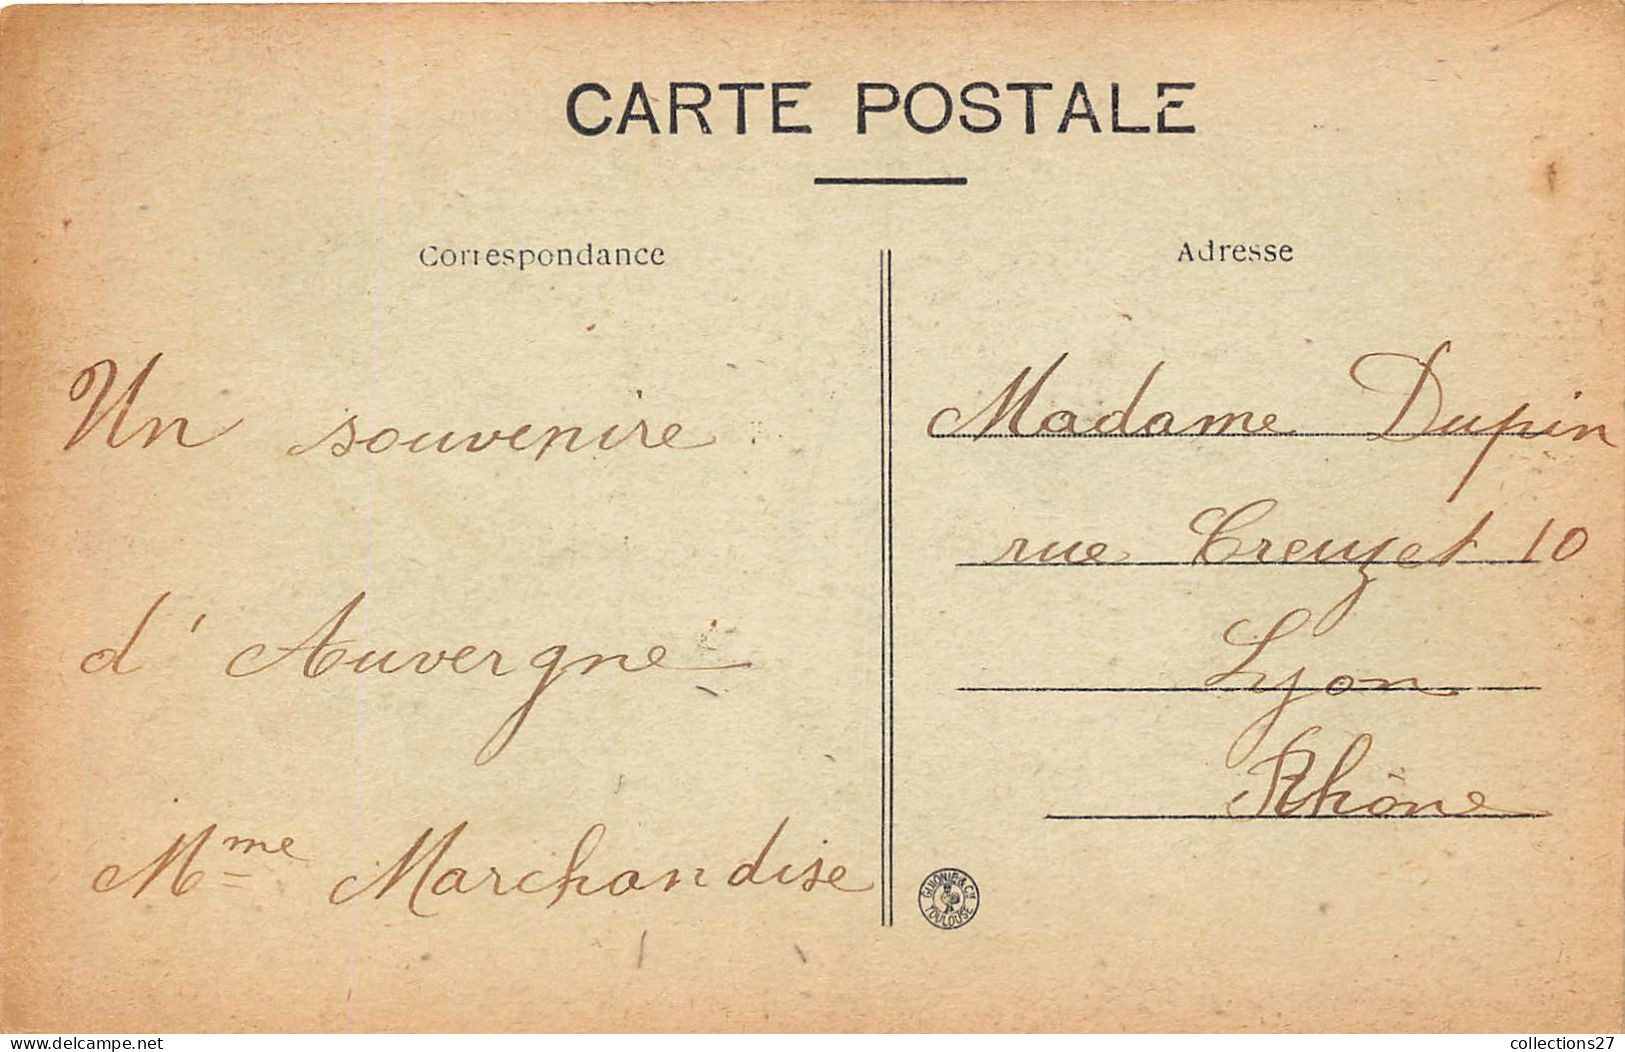 CARTE POSTALE
Correspondance
Un souvenire
d'Auvergne
Mme Marchandise
Adresse
Madame Dupin
rue Creuzet 10
Lyon
Rhône
GIMONIE & Cie
TOULOUSE
delcampe.net
collections27